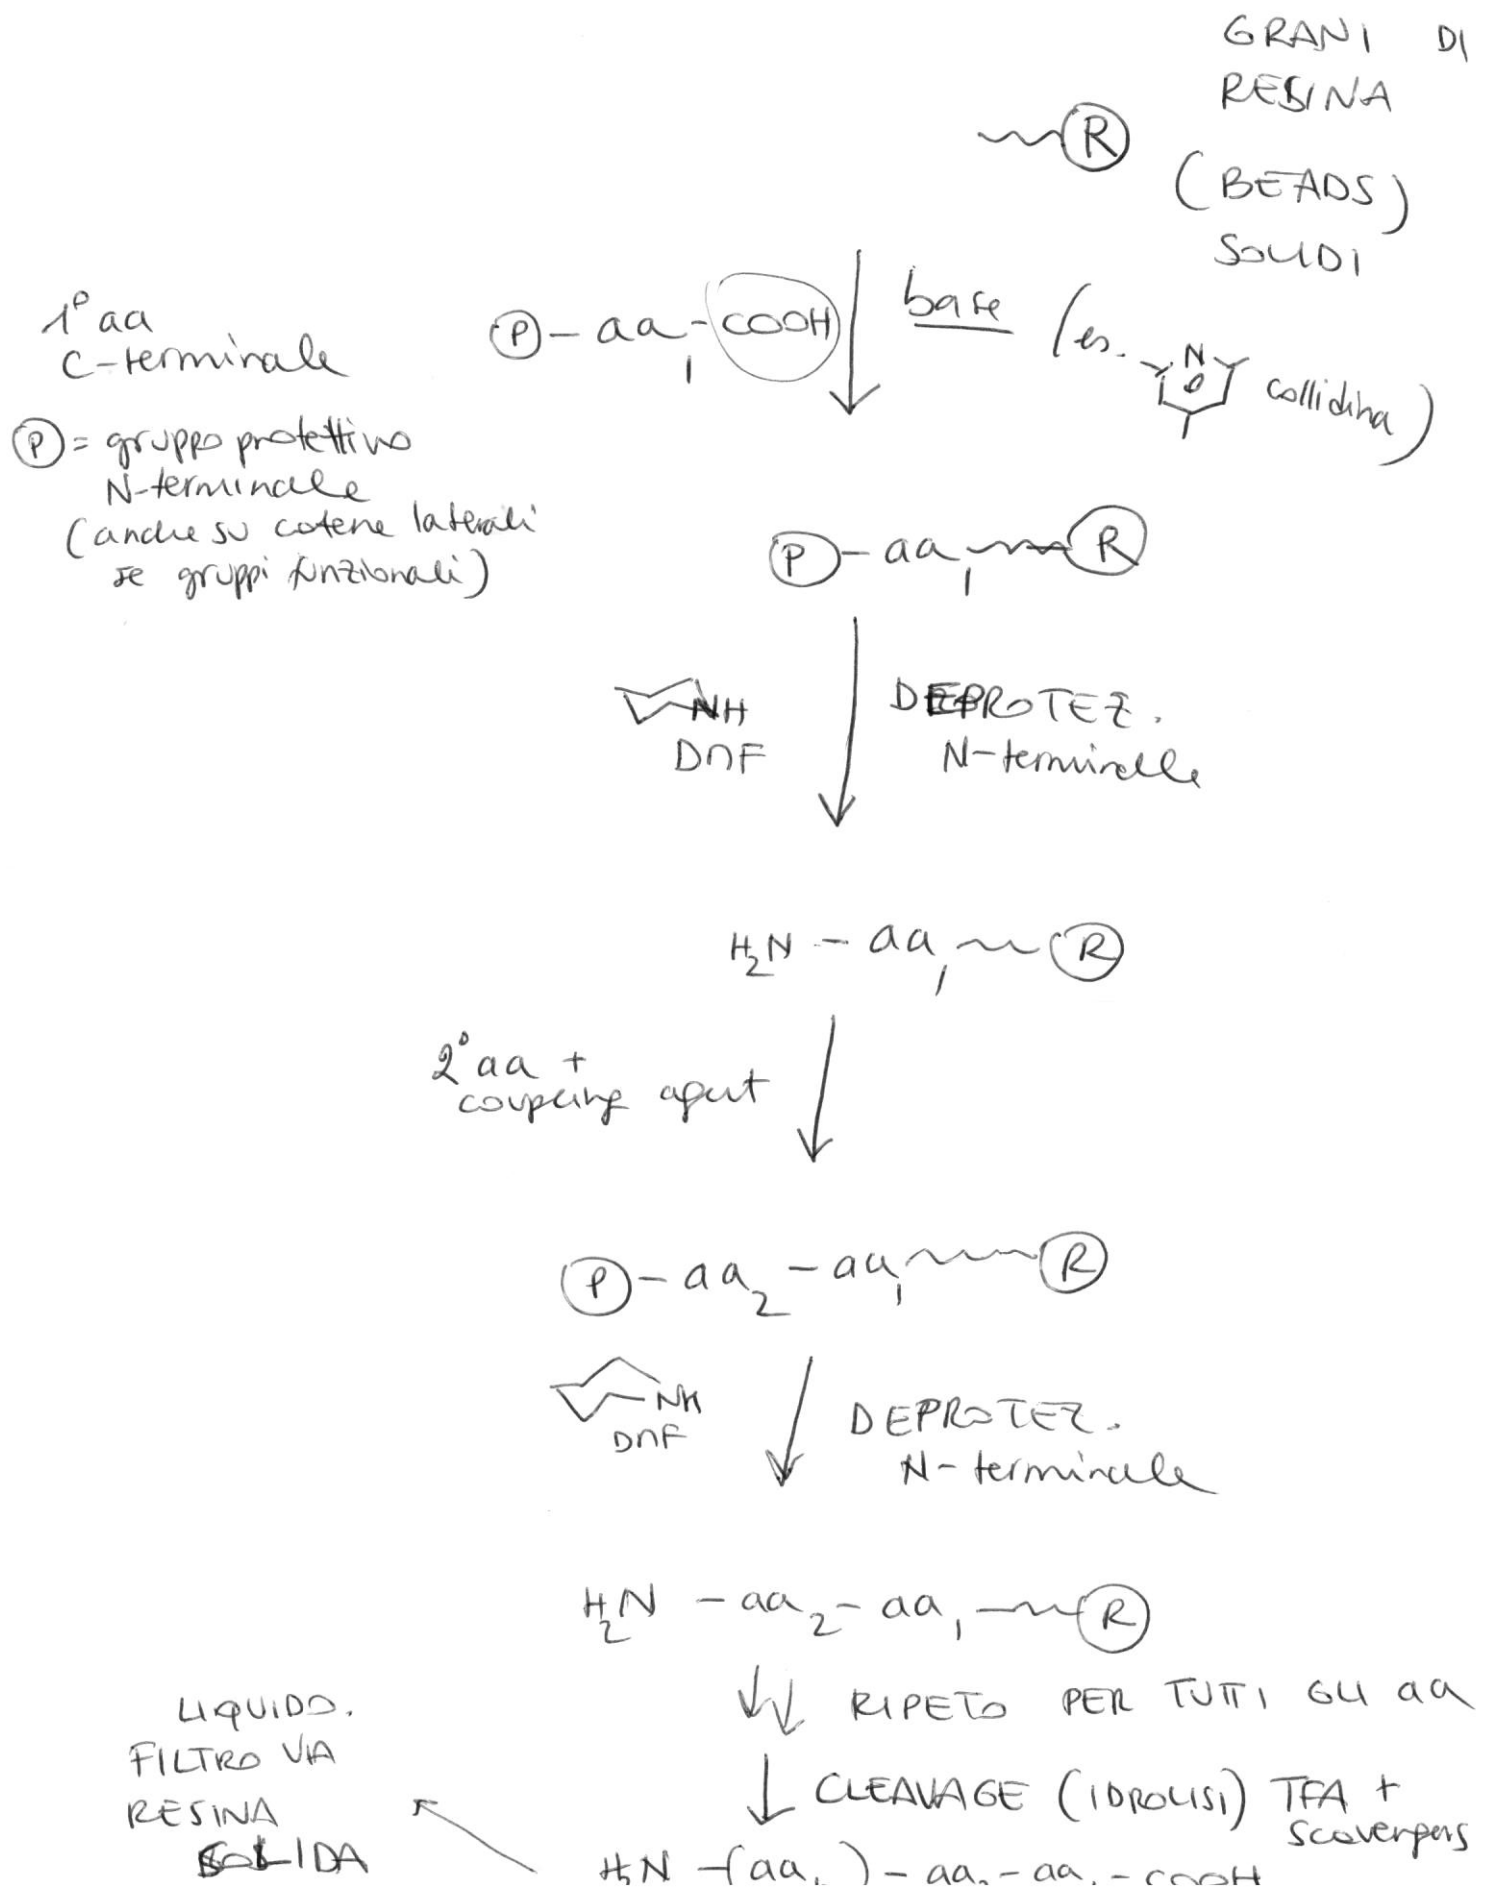 GRANI DI
RESINA
(BEADS)
SOLIDI
R
1° aa
C-terminale
P - aa1 - COOH
base (es. N collidina)
P = gruppo protettivo
N-terminale
(anche su catene laterali
se gruppi funzionali)
P - aa1 R
NH
DMF
DEPROTEZ.
N-terminale
H2N - aa1 R
2° aa +
coupling agent
P - aa2 - aa1 R
NH
DMF
DEPROTEZ.
N-terminale
H2N - aa2 - aa1 R
RIPETO PER TUTTI GLI aa
CLEAVAGE (IDROLISI) TFA +
scavengers
LIQUIDO.
FILTRO VIA
RESINA
SOLIDA
H2N - (aa ) - aa2 - aa1 - COOH